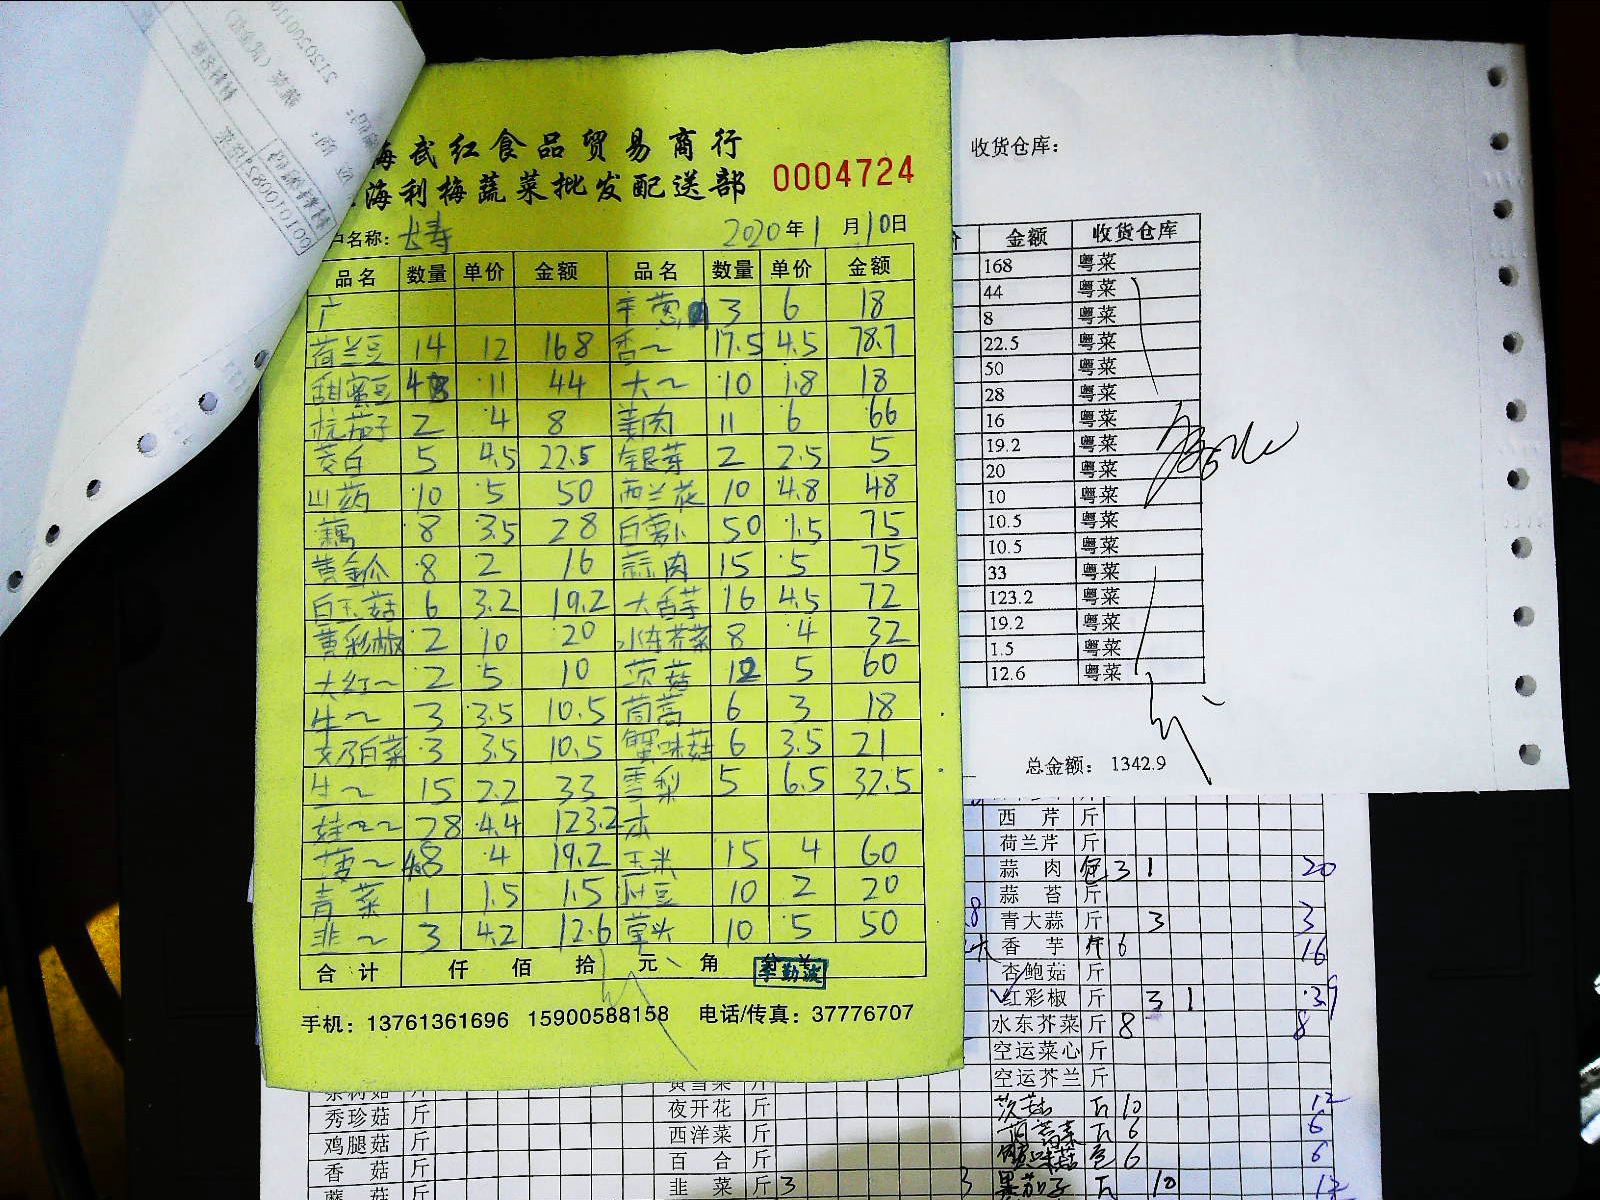 海武红食品贸易商行
海利梅蔬菜批发配送部 0004724
户名称: 长寿 2020年1月10日
品名 数量 单价 金额 品名 数量 单价 金额
广 羊葱 3 6 18
荷兰豆 14 12 168 香~ 17.5 4.5 78.7
甜蜜豆 4 11 44 大~ 10 1.8 18
杭茄子 2 4 8 姜肉 11 6 66
茭白 5 4.5 22.5 银芽 2 2.5 5
山药 10 5 50 西兰花 10 4.8 48
藕 8 3.5 28 白萝卜 50 1.5 75
黄金瓜 8 2 16 蒜肉 15 5 75
白玉菇 6 3.2 19.2 大香芋 16 4.5 72
黄彩椒 2 10 20 水东芥菜 8 4 32
大红~ 2 5 10 茨菇 12 5 60
牛~ 3 3.5 10.5 茼蒿 6 3 18
奶白菜 3 3.5 10.5 蟹味菇 6 3.5 21
生~ 15 2.2 33 雪梨 5 6.5 32.5
娃~~ 28 4.4 123.2 本
菠~ 4.8 4 19.2 玉米 15 4 60
青菜 1 1.5 1.5 10 2 20
韭~ 3 4.2 12.6 草头 10 5 50
合计 仟 佰 拾 元 角 分 ¥
李勤波
手机: 13761361696 15900588158 电话/传真: 37776707
收货仓库:
价 金额 收货仓库
168 粤菜
44 粤菜
8 粤菜
22.5 粤菜
50 粤菜
28 粤菜
16 粤菜
19.2 粤菜
20 粤菜
10 粤菜
10.5 粤菜
10.5 粤菜
33 粤菜
123.2 粤菜
19.2 粤菜
1.5 粤菜
12.6 粤菜
总金额: 1342.9
西芹 斤
荷兰芹 斤
蒜肉 包 3 1 20
蒜苔 斤
青大蒜 斤 3 3
香芋 斤 6 16
杏鲍菇 斤
红彩椒 斤 3 1 3
水东芥菜 斤 8 8
空运菜心 斤
空运芥兰 斤
茨菇 斤 10 12
茼蒿菜 斤 6 6
蟹味菇 包 6 6
黑茄子 斤 10 12
茶树菇 斤 黄雪菜 斤
秀珍菇 斤 夜开花 斤
鸡腿菇 斤 西洋菜 斤
香菇 斤 百合 斤
蘑菇 斤 韭菜 斤 3 3